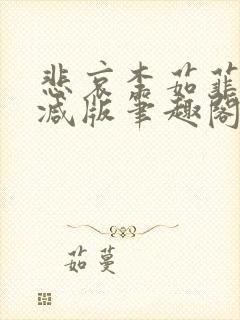 悲哀本茹韮
减版笔趣阁
茹蔓